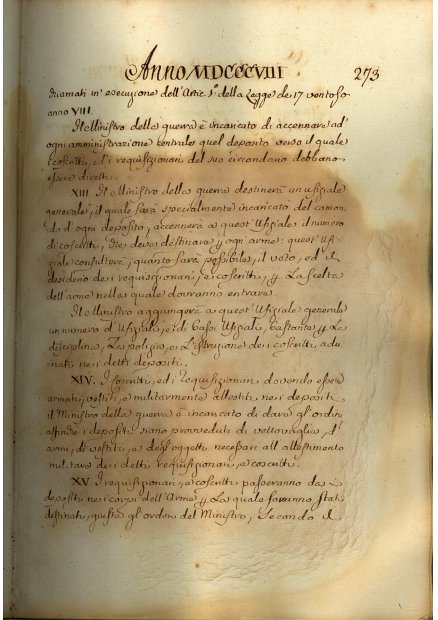 Anno MDCCCVIII 273
diamati in' esecuzione dell' Artic. 1º della Legge de 17 ventoso
anno VIII.
Il Ministro della guerra è incaricato di accennare ad'
ogni amministrazione centrale quel deposito verso il quale
i coscritti, ed i requisizionari del suo circondario debbano
essere diretti.
XIII. Il Ministro della guerra destinerà un ufiziale
generale, il quale sarà specialmente incaricato del coman-
do d' ogni deposito, accennerà a quest' Ufiziale il numero
di coscritti, che deve destinare ogni arme: quest' Ufi-
ziale consulterà, quanto sarà possibile, il voto, ed il
desiderio dei requisizionari, e coscritti, La scelta
dell' arme nella quale dovranno entrare.
Il Ministro aggiungerà a quest' Ufiziale generale
un numero d' Ufiziali, e di Bassi Ufiziali, bastante La
disciplina, La polizia, e L'istruzione dei coscritti adu-
nati nei detti depositi.
XIV. I coscritti, ed i requisizionari dovendo essere
armati, vestiti, e militarmente allestiti nei depositi
il Ministro della guerra è incaricato di dare gl' ordini,
affinche i depositi siano provveduti di vettovaglia, d'
armi, di vestiti, e degl' oggetti necessari all' allestimento
militare dei detti requisizionari, e coscritti.
XV. I requisizionari, e coscritti passeranno da
depositi nei corpi dell' Arme La quale saranno stati
destinati, giusta gl' ordini del Ministro, Secondo il